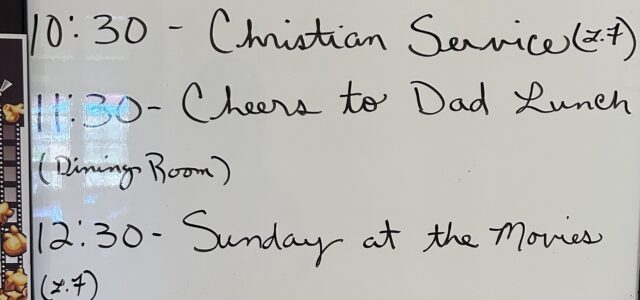 10:30 - Christian Service (z.7)
11:30 - Cheers to Dad Lunch
(Dining Room)
12:30 - Sunday at the Movies
(z.7)